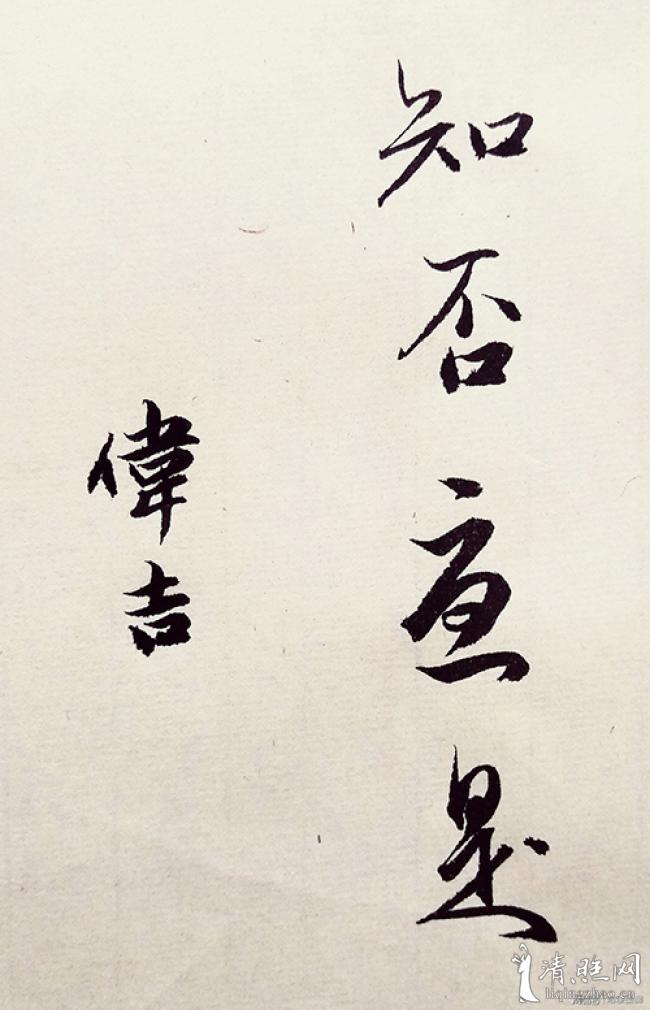 知否應是
偉吉
清照网
liqingzhao.cn